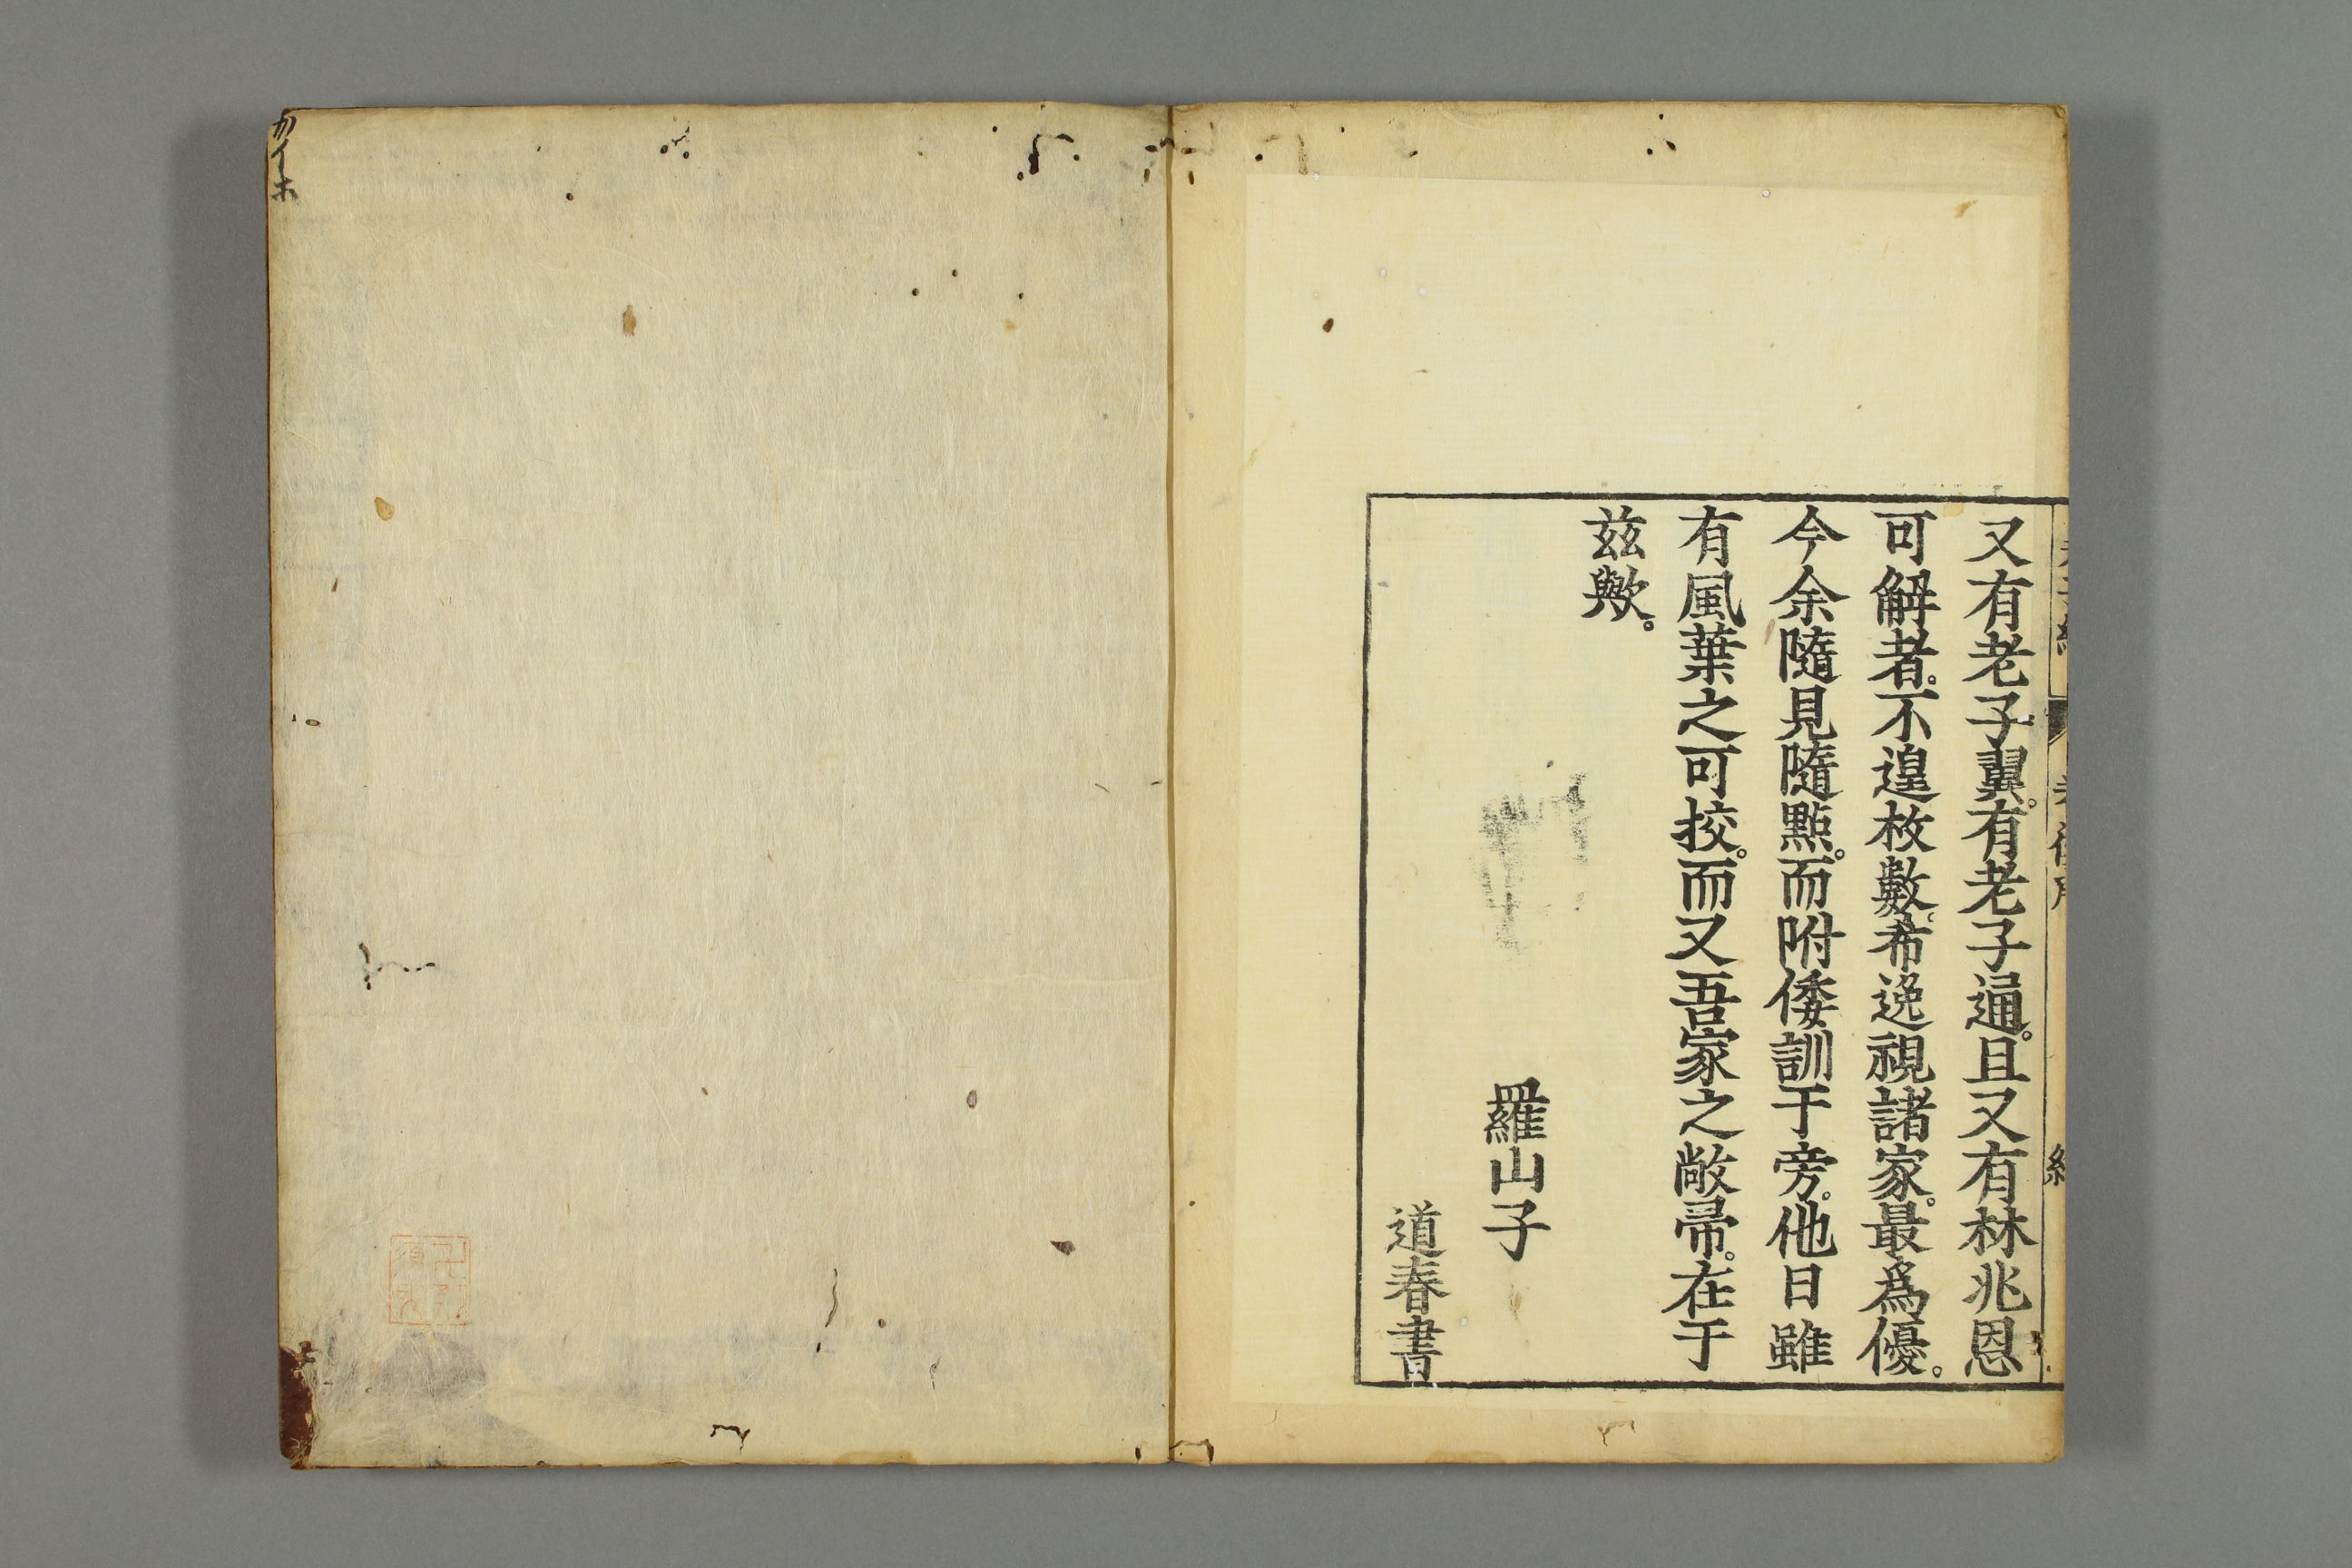 又有老子翼。有老子通。且又有林兆恩
可解者。不遑枚數。希逸視諸家。最爲優。
今余隨見隨點。而附倭訓于旁。他日雖
有風葉之可挍。而又吾家之敞帚。在于
茲歟。
羅山子
道春書
カイホ